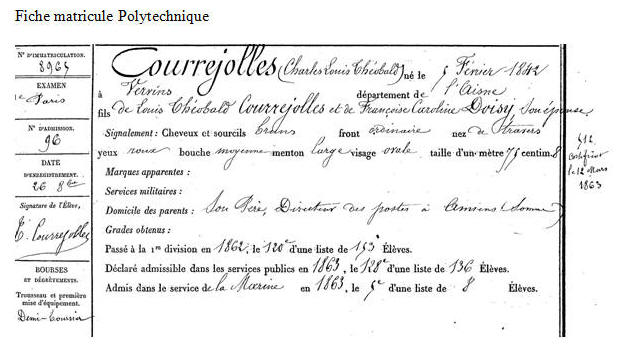 Fiche matricule Polytechnique
N° D'IMMATRICULATION.
8965
EXAMEN
Paris
N° D'ADMISSION.
96
DATE
D'ENREGISTREMENT.
26 8bre
Signature de l'Élève,
T. Courrejolles
BOURSES
ET DÉGRÈVEMENTS.
Trousseau et première
mise d'équipement.
Demi-Trousseau
Courrejolles (Charles Louis Théobald) né le 5 Février 1842
à Vervins département de l'Aisne
fils de Louis Théobald Courrejolles et de Françoise Caroline Doisy Son épouse
Signalement : Cheveux et sourcils bruns front ordinaire nez de travers
yeux roux bouche moyenne menton large visage ovale taille d'un mètre 75 centim. 8
Marques apparentes :
Services militaires :
Domicile des parents : Son Père, Directeur des postes à Amiens (Somme)
Grades obtenus :
Passé à la 1re division en 1862, le 120e d'une liste de 153 Élèves.
Déclaré admissible dans les services publics en 1863, le 128e d'une liste de 136 Élèves.
Admis dans le service de la Marine en 1863, le 5e d'une liste de 8 Élèves.
512
certificat
le 12 Mars
1863